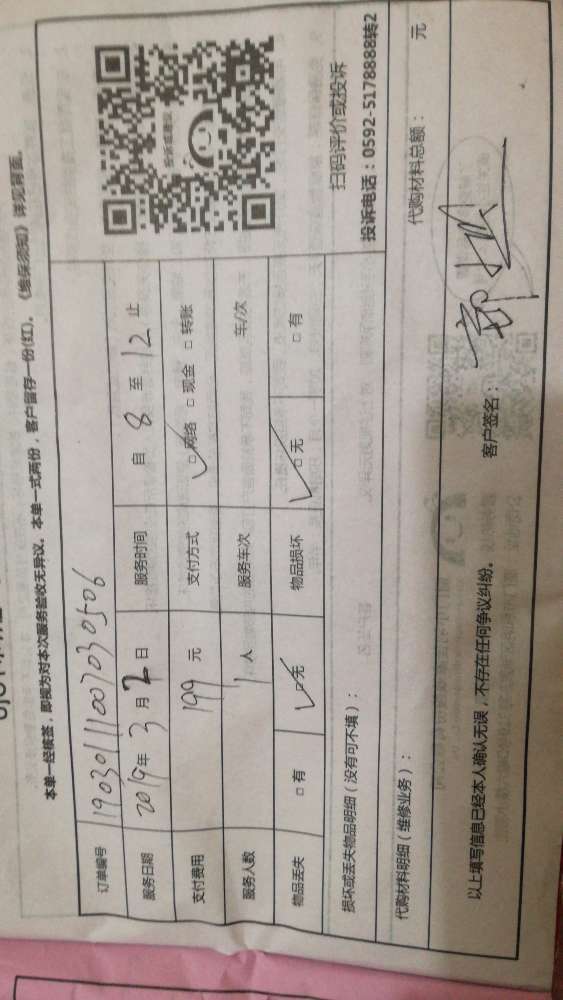 本单一经续签，即视为对本次服务验收无异议。本单一式两份，客户留存一份(红)。《维保须知》详见背面。
订单编号 19030111007030506
服务日期 2019年 3 月 2 日 服务时间 自 8 至 12 止
支付费用 199 元 支付方式 ☑网络 □现金 □转账
服务人数 1 人 服务车次 车/次
物品丢失 □有 ☑无 物品损坏 ☑无 □有
投诉或建议
扫码评价或投诉
投诉电话：0592-5178888转2
损坏或丢失物品明细（没有可不填）：
代购材料明细（维修业务）： 代购材料总额： 元
以上填写信息已经本人确认无误，不存在任何争议纠纷。 客户签名：